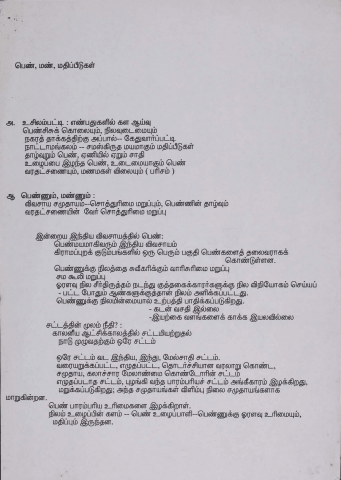 பெண், மண், மதிப்பீடுகள்
அ. உசிலம்பட்டி : எண்பதுகளில் கள ஆய்வு
பெண்சிசுக் கொலையும், நிலவுடைமையும்
நகரத் தாக்கத்திற்கு அப்பால்-- கேதுவார்பட்டி
நாட்டாமங்கலம் -- சமஸ்கிருத மயமாகும் மதிப்பீடுகள்
தாழ்வுறும் பெண், ஏணியில் ஏறும் சாதி
உழைப்பை இழந்த பெண், உடைமையாகும் பெண்
வரதட்சணையும், மணமகள் விலையும் ( பரிசம் )
ஆ பெண்ணும், மண்ணும் :
விவசாய சமுதாயம்--சொத்துரிமை மறுப்பும், பெண்ணின் தாழ்வும்
வரதட்சணையின் வேர் சொத்துரிமை மறுப்பு
இன்றைய இந்திய விவசாயத்தில் பெண்:
பெண்மயமாகிவரும் இந்திய விவசாயம்
கிராமப்புறக் குடும்பங்களில் ஒரு பெரும் பகுதி பெண்களைத் தலைவராகக்
கொண்டுள்ளன.
பெண்ணுக்கு நிலத்தை சுவீகரிக்கும் வாரிசுரிமை மறுப்பு
சம கூலி மறுப்பு
ஓரளவு நில சீர்திருத்தம் நடந்து குத்தகைக்காரர்களுக்கு நில விநியோகம் செய்யப்
- பட்ட போதும் ஆண்களுக்குத்தான் நிலம் அளிக்கப்பட்டது.
பெண்ணுக்கு நிலமின்மையால் உற்பத்தி பாதிக்கப்படுகிறது.
- கடன் வசதி இல்லை
-இயற்கை வளங்களைக் காக்க இயலவில்லை
சட்டத்தின் மூலம் நீதி? :
காலனிய ஆட்சிக்காலத்தில் சட்டமியற்றுதல்
நாடு முழுவதற்கும் ஒரே சட்டம்
ஒரே சட்டம் வட இந்திய, இந்து, மேல்சாதி சட்டம்.
வரையறுக்கப்பட்ட, எழுதப்பட்ட, தொடர்ச்சியான வரலாறு கொண்ட,
சமுதாய, கலாச்சார மேலாண்மை கொண்டோரின் சட்டம்
எழுதப்படாத சட்டம், புழங்கி வந்த பாரம்பரியச் சட்டம் அங்கீகாரம் இழக்கிறது,
மறுக்கப்படுகிறது; அந்த சமுதாயங்கள் விளிம்பு நிலை சமுதாயங்களாக
மாறுகின்றன.
பெண் பாரம்பரிய உரிமைகளை இழக்கிறாள்.
நிலம் உழைப்பின் களம் -- பெண் உழைப்பாளி--பெண்ணுக்கு ஓரளவு உரிமையும்,
மதிப்பும் இருந்தன.